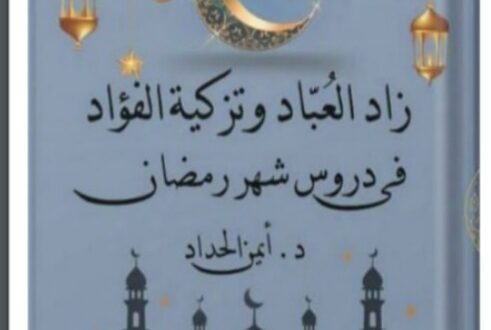 زاد العُبّاد وتزكية الفؤاد
فى دروس شهر رمضان
د. أيمن الحداد